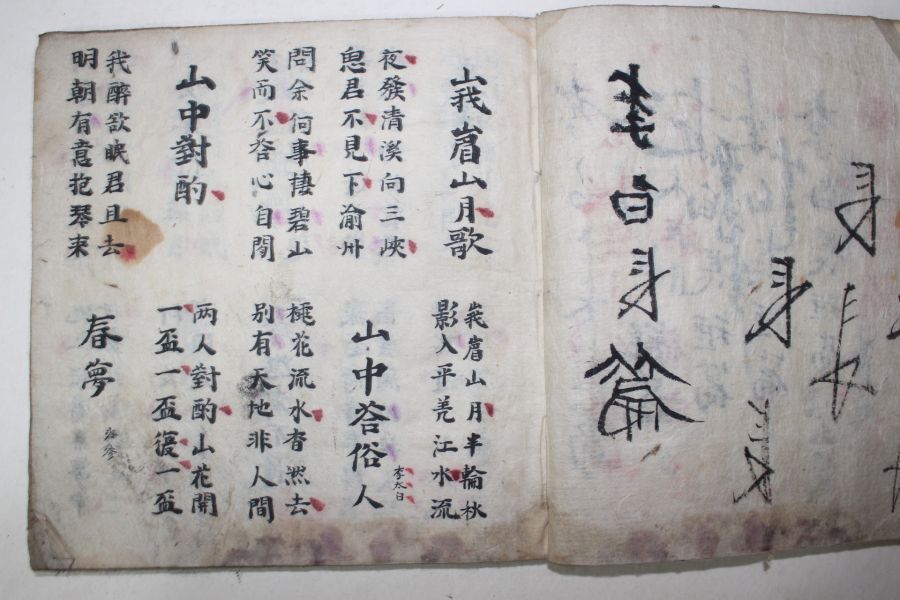 李白長篇
峩嵋山月歌
峩嵋山月半輪秋
影入平羌江水流
夜發清溪向三峽
思君不見下渝州
山中答俗人
李太白
問余何事棲碧山
笑而不答心自閒
桃花流水杳然去
別有天地非人間
山中對酌
两人對酌山花開
一盃一盃復一盃
我醉欲眠君且去
明朝有意抱琴来
春夢
岑参